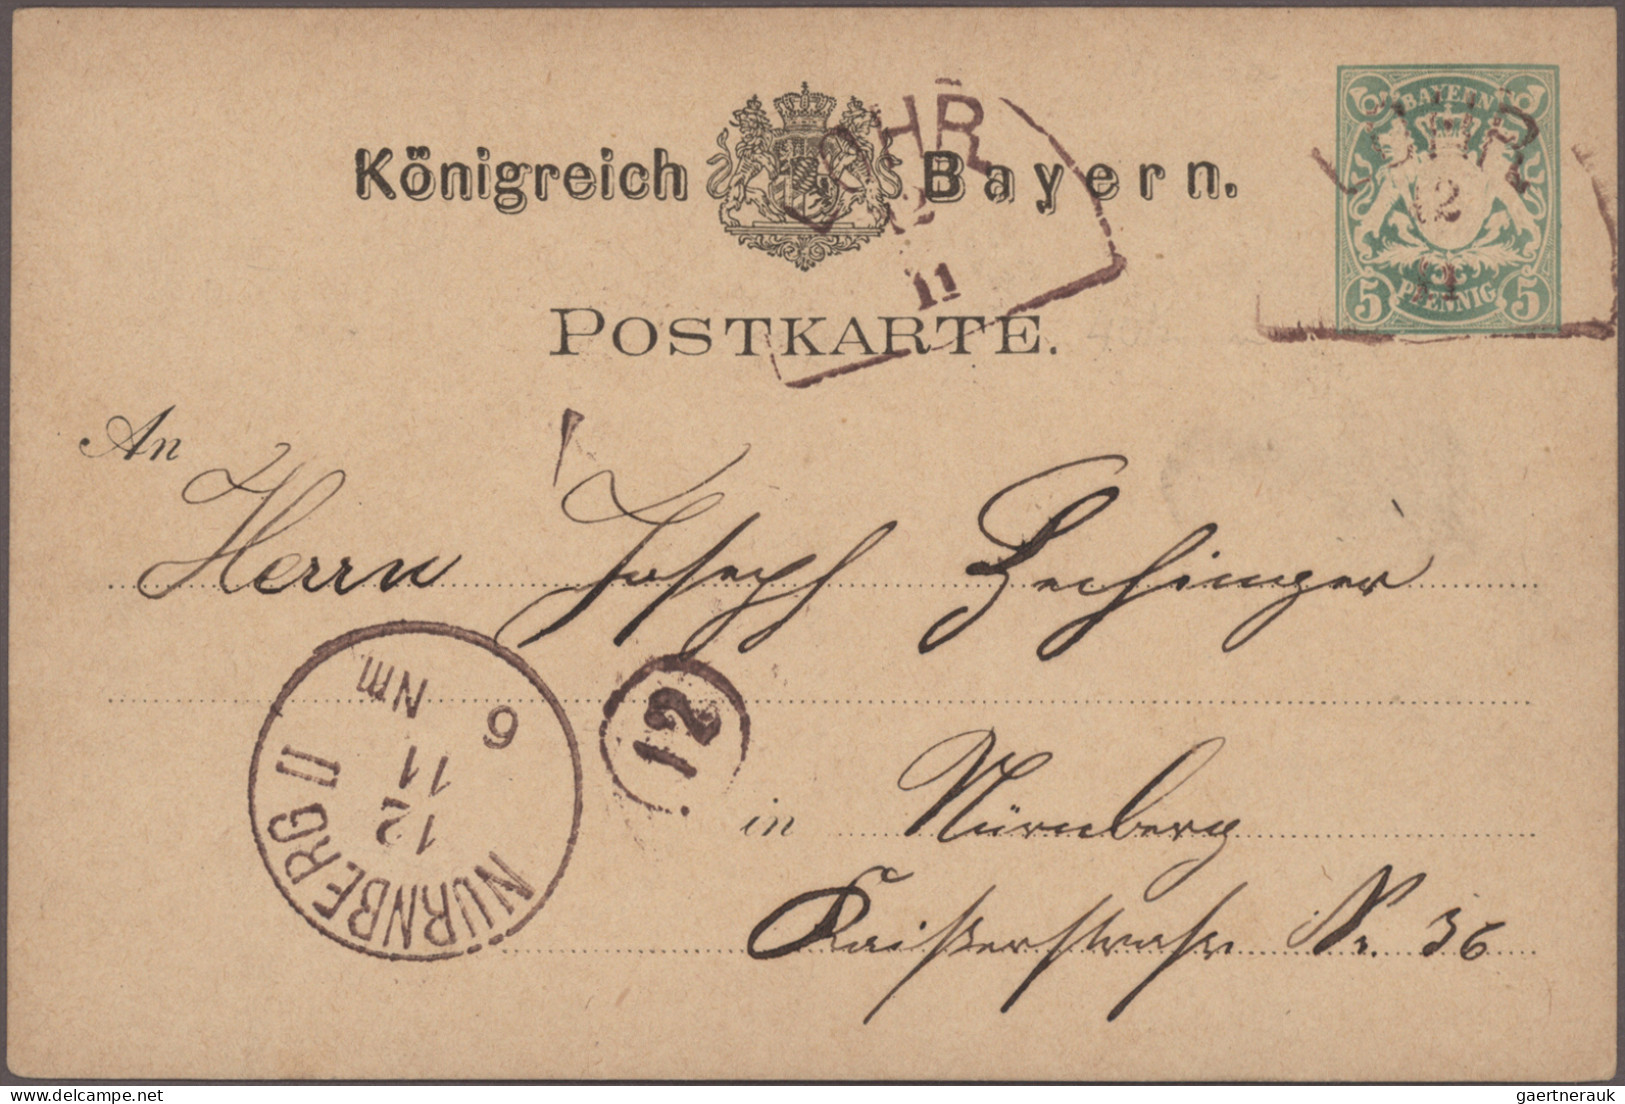 BAYERN
LOHR
12
11
LOHR
12
11
Königreich Bayern.
5 PFENNIG 5
POSTKARTE.
An
Herrn Joseph Gechinger
NÜRNBERG II
12
11
Nm
6
12
in Nürnberg
Kaiserstrasse Nr. 36
gaertnerauk